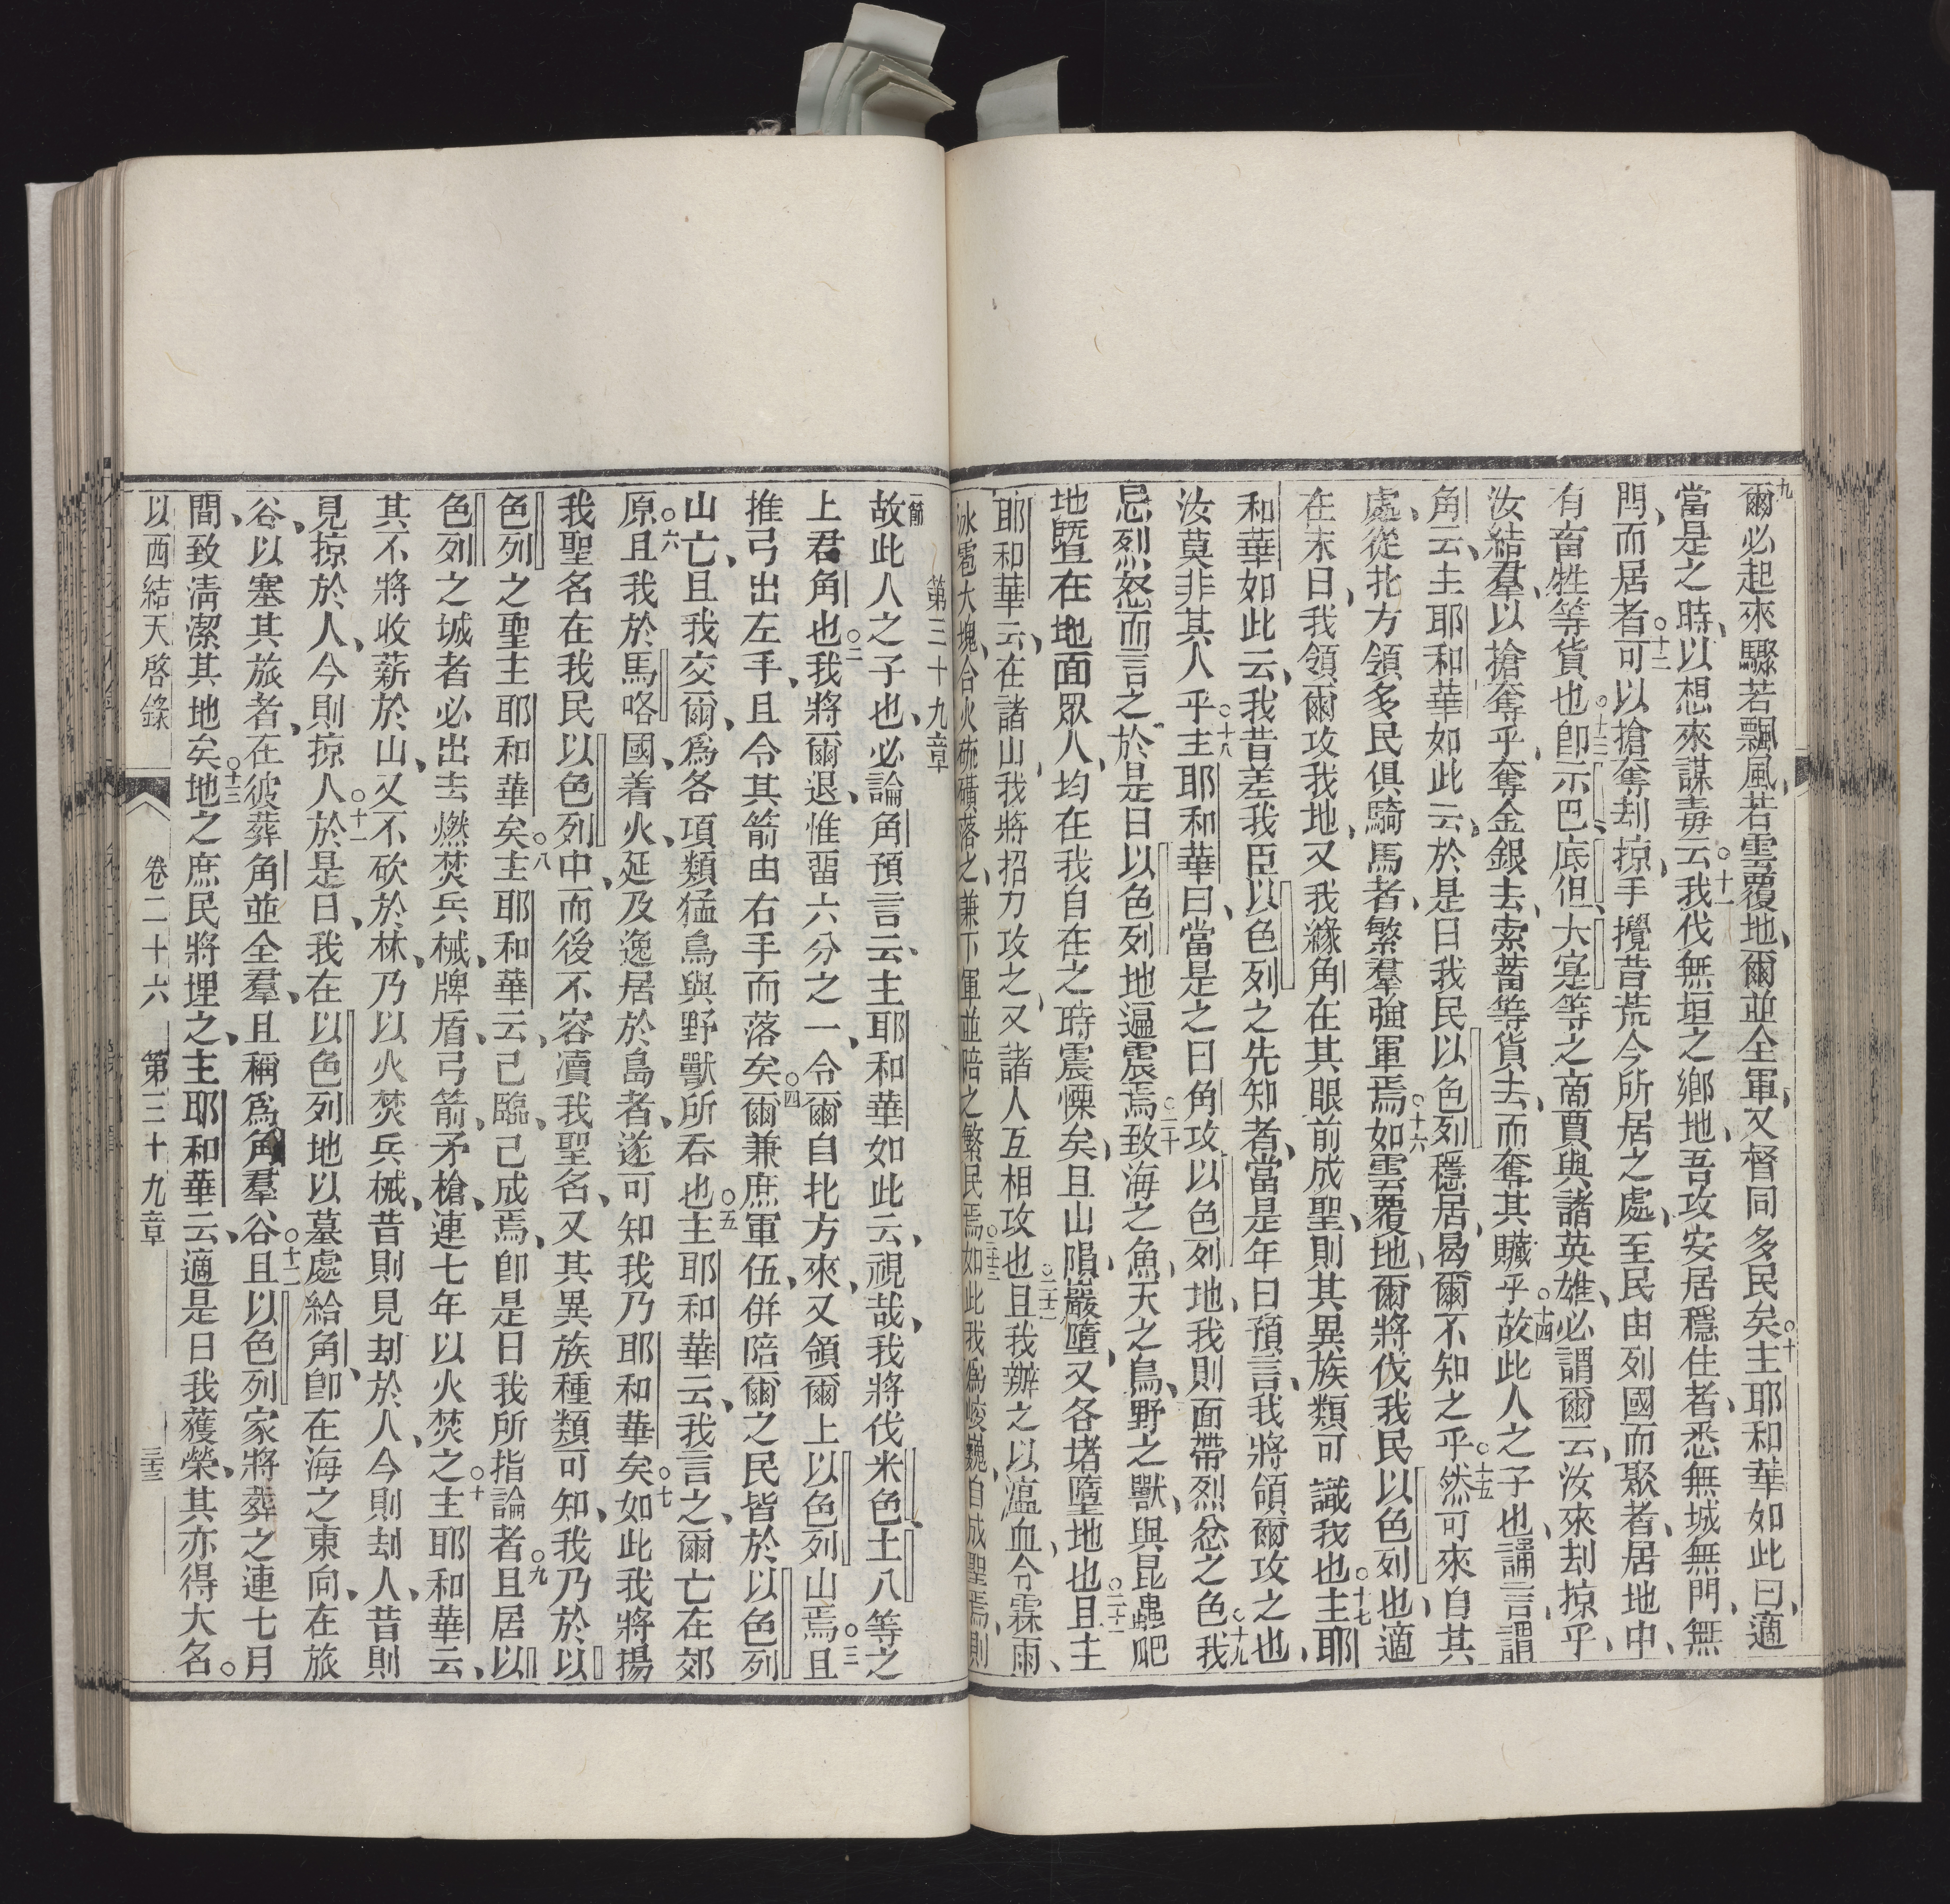 九爾必起來驟若飄風、若雲覆地、爾並全軍、又督同多民矣。十主耶和華如此曰、適
當是之時、以想來謀毒、十一云我伐無垣之鄉地、吾攻安居穩住者、悉無城無門、無
閂、而居者。十二可以搶奪刧掠、手攪昔荒今所居之處、至民由列國而聚者、居地中、
有畜牲等貨也。十三卽示巴、底但、大寔等之商賈與諸英雄、必謂爾云、汝來刧掠乎、
汝結羣、以搶奪乎、奪金銀去、索蓄等貨去、而奪其贜乎。十四故此人之子也、誦言謂
角云、主耶和華如此云、於是日我民以色列穩居、曷爾不知之乎。十五然可來自其
處、從北方領多民俱騎馬者、繁羣強軍焉。十六如雲覆地、爾將伐我民以色列也、適
在末日、我領爾攻我地、又我緣角在其眼前成聖、則其異族類可識我也。十七主耶
和華如此云、我昔差我臣以色列之先知者、當是年日預言、我將領爾攻之也、
汝莫非其人乎。十八主耶和華曰、當是之日角攻以色列地、我則面帶烈忿之色。十九我
忌烈怒而言之、於是日以色列地逼震焉。二十致海之魚、天之鳥、野之獸、與昆蟲爬
地暨在地面眾人、均在我自在之時震慄矣、且山隕、巖墮、又各堵墮地也。二十一且主
耶和華云、在諸山我將招刀攻之、又諸人互相攻也。二十二且我辦之以瘟血、令霖雨、
冰雹大塊、合火硫磺落之、兼下軍並陪之繁民焉。二十三如此我爲峻巍、自成聖焉、則
第三十九章
一節故此人之子也、必論角預言云、主耶和華如此云、視哉、我將伐米色土八等之
上君角也。二我將爾退、惟畱六分之一、令爾自北方來、又領爾上以色列山焉。三且
推弓出左手、且令其箭由右手而落矣。四爾兼庶軍伍、併陪爾之民皆於以色列
山亡、且我交爾、爲各項類猛鳥與野獸所吞也。五主耶和華云、我言之、爾亡在郊
原。六且我於馬咯國、着火、延及逸居於島者、遂可知我乃耶和華矣。七如此我將揚
我聖名在我民以色列中、而後不容瀆我聖名、又其異族種類可知、我乃於以
色列之聖主耶和華矣。八主耶和華云、己臨、己成焉、卽是日我所指論者。九且居以
色列之城者必出去燃焚兵械、牌盾、弓箭、矛槍、連七年以火焚之。十主耶和華云、
其不將收薪於山、又不砍於林、乃以火焚兵械、昔則見刧於人、今則刧人、昔則
見掠於人、今則掠人。十一於是日、我在以色列地以墓處給角、卽在海之東向、在旅
谷、以塞其旅者、在彼葬角並全羣、且稱爲角羣谷。十二且以色列家將葬之連七月
間、致清潔其地矣。十三地之庶民將埋之、主耶和華云、適是日我獲榮、其亦得大名。
以西結天啓錄 卷二十六 第三十九章 三十三